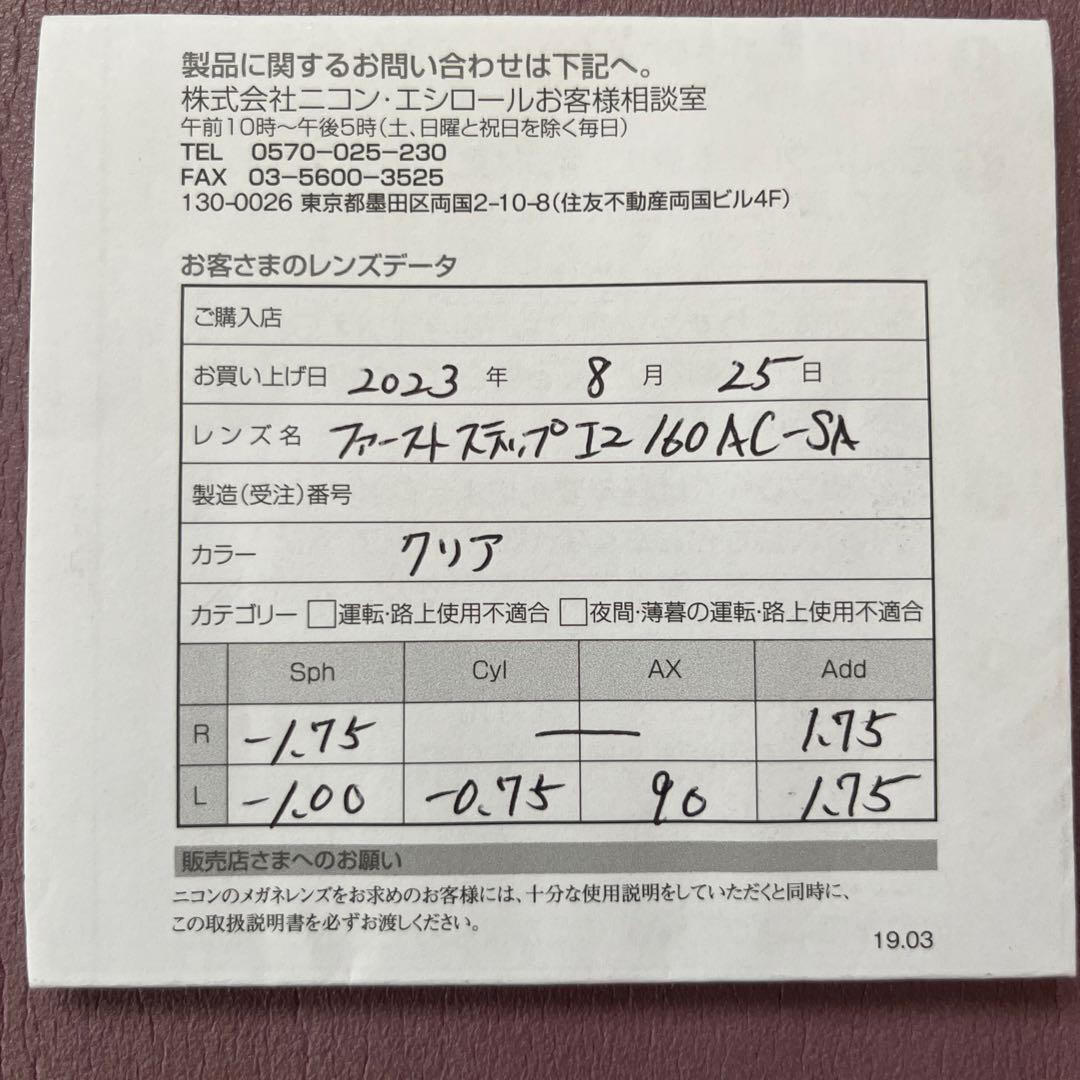 製品に関するお問い合わせは下記へ。
株式会社ニコン・エシロールお客様相談室
午前10時～午後5時(土、日曜と祝日を除く毎日)
TEL 0570-025-230
FAX 03-5600-3525
130-0026 東京都墨田区両国2-10-8(住友不動産両国ビル4F)
お客さまのレンズデータ
ご購入店
お買い上げ日 2023 年 8 月 25 日
レンズ名 ファーストステップI2 160 AC-SA
製造(受注)番号
カラー クリア
カテゴリー □運転・路上使用不適合 □夜間・薄暮の運転・路上使用不適合
Sph Cyl AX Add
R -1.75 — 1.75
L -1.00 -0.75 90 1.75
販売店さまへのお願い
ニコンのメガネレンズをお求めのお客様には、十分な使用説明をしていただくと同時に、
この取扱説明書を必ずお渡しください。
19.03